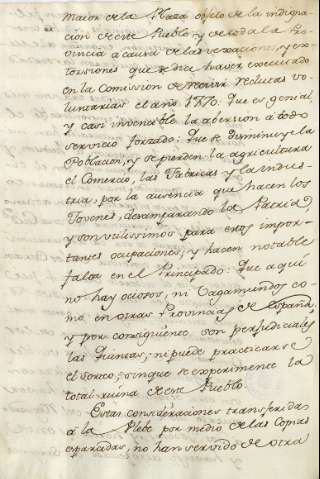 maior de la Plaza objeto de la indigna-
cion de este Pueblo, y de toda la Pro-
vincia a causa de las vexaciones, y ex-
torsiones que se dice haver executado
en la Comission de recivir reclutas vo-
luntarias el año 1770. Que es genial
y casi invencible la aversion a todo
servicio forzado: Que se disminuye la
Poblacion, y se pierden la agricultura
el Comercio, las Fabricas y la Indus-
tria, por la ausencia que hacen los
Jovenes, desamparando la Patria,
y son utilissimos para estas impor-
tantes ocupaciones, y hacen notable
falta en el Principado: Que aqui
no hay ociosos, ni Vagamundos co-
mo en otras Provincias de España,
y por consiguiente son perjudiciales
las Quintas; ni puede practicarse
el sorteo, sin que se experimente la
total ruina de este Pueblo.
Estas consideraciones transferidas
a la Plebe por medio de las Copias
esparcidas, no han servido de otra